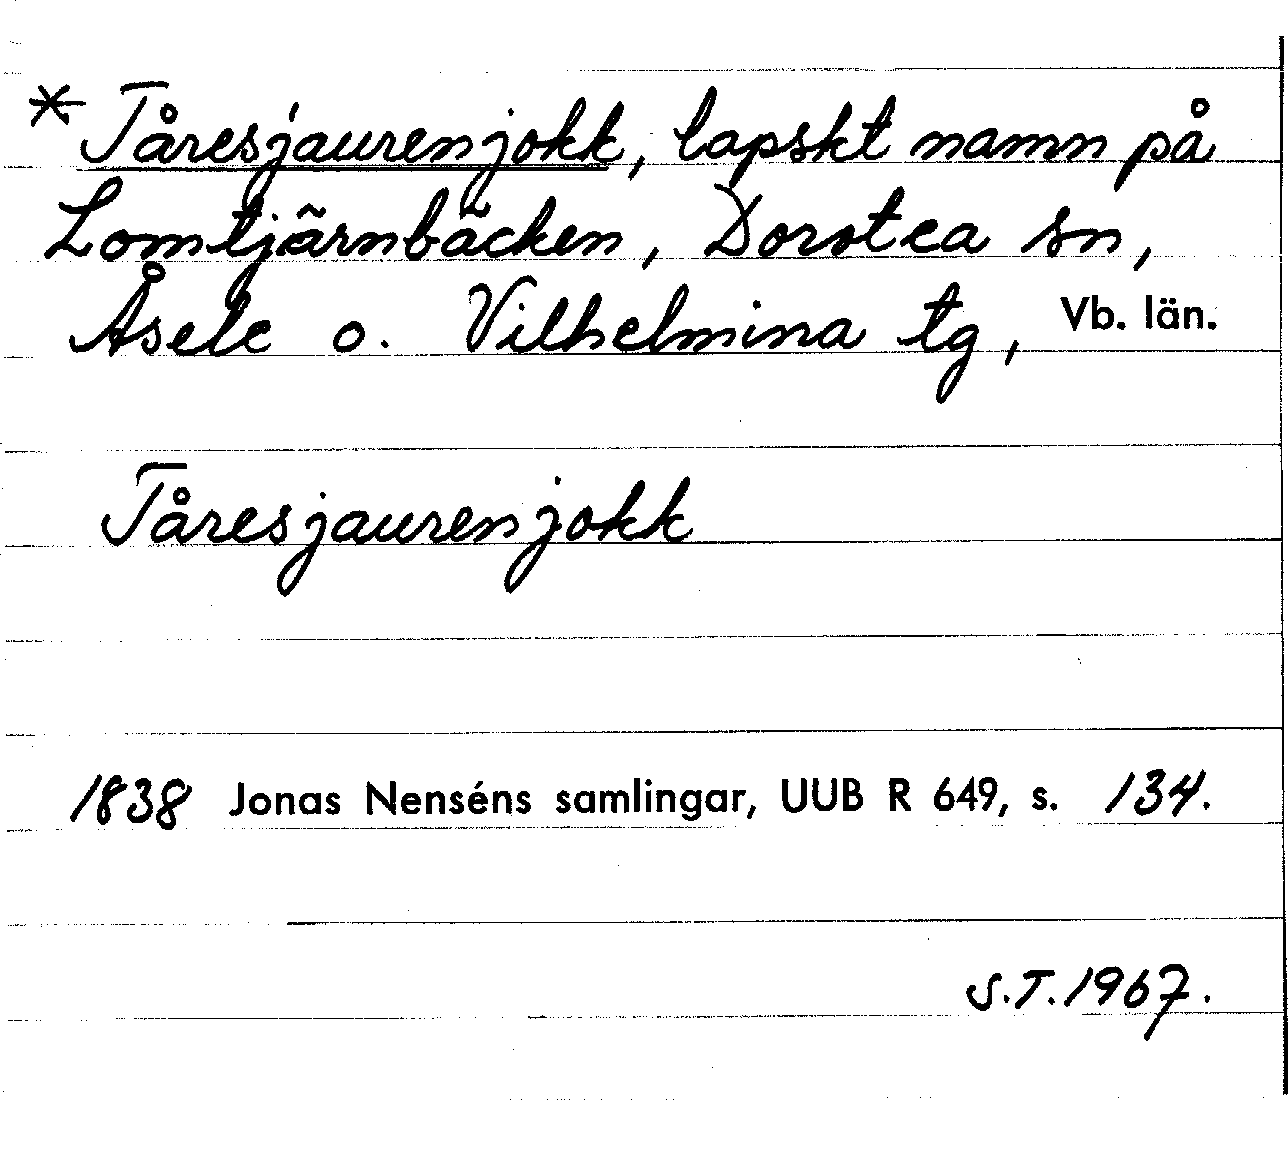 * Tåresjaurenjokk, lapskt namn på
Lomtjärnbäcken, Dorotea sn,
Åsele o. Vilhelmina tg, Vb. län.
Tåresjaurenjokk
1838 Jonas Nenséns samlingar, UUB R 649, s. 134.
S.T. 1967.